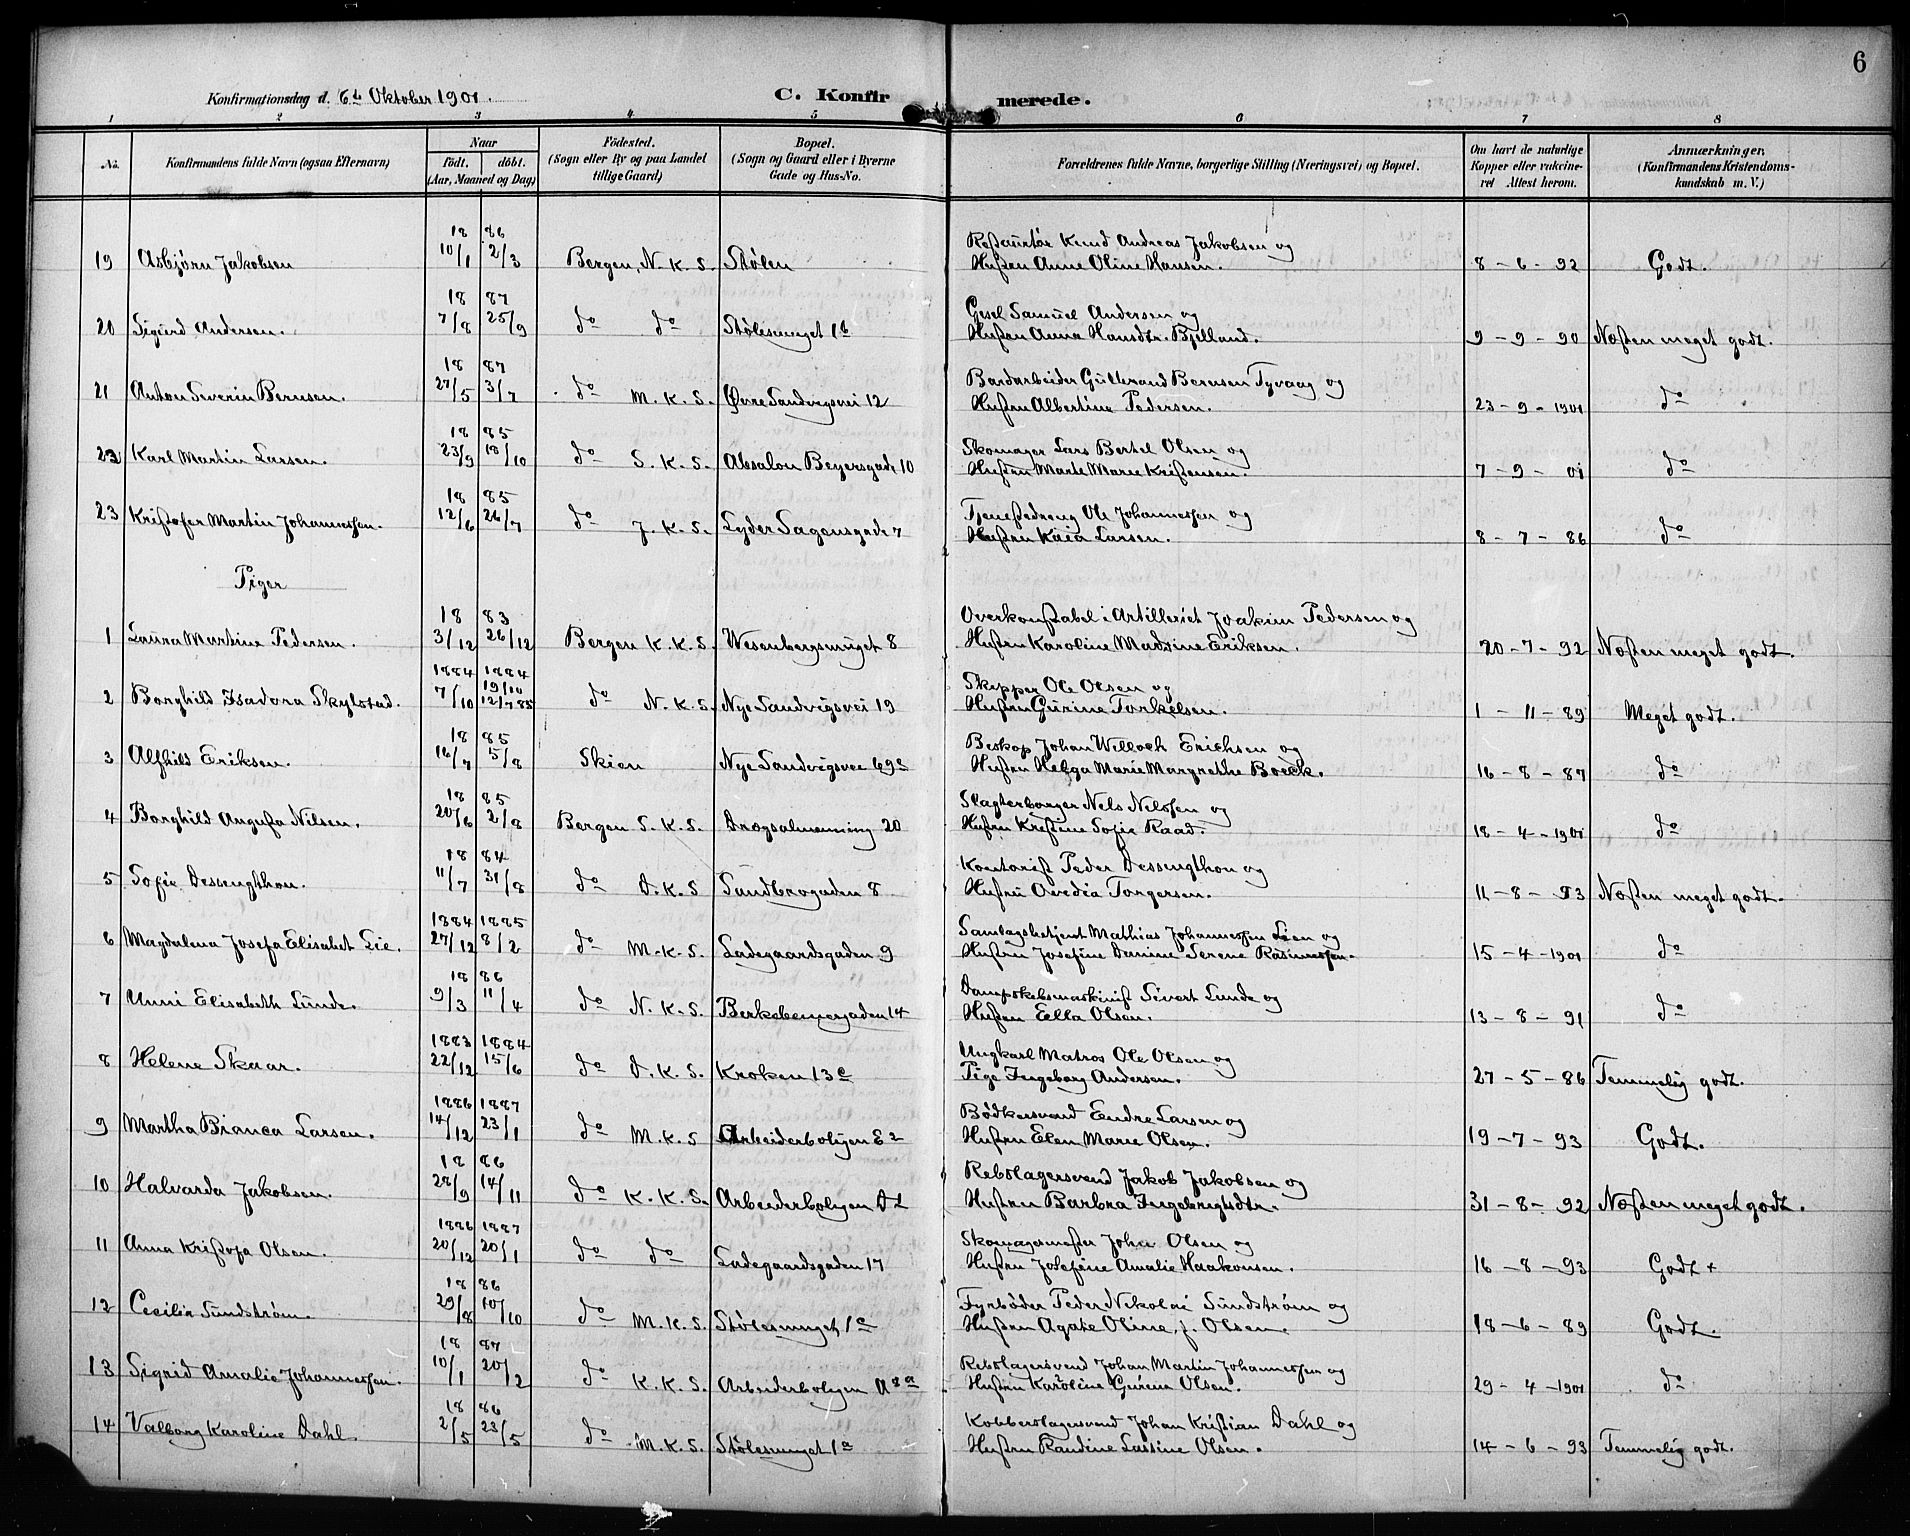 6
Konfirmationsdag d. 6te Oktober 1901. C. Konfirmerede.
1 2 3 4 5 6 7 8
No. Konfirmandens fulde Navn (ogsaa Efternavn) Naar födt. döbt. (Aar, Maaned og Dag) Födested. (Sogn eller By og paa Landet tillige Gaard) Bopæl. (Sogn og Gaard eller i Byerne Gade og Hus-No. Forældrenes fulde Navne, borgerlige Stilling (Næringsvei) og Bopæl. Om havt de naturlige Kopper eller vakcineret Attest herom. Anmærkninger. (Konfirmandens Kristendomskundskab m. V.)
18 86 Restaurtør Knud Andreas Jakobsen og
19 Asbjørn Jakobsen 10/1 2/3 Bergen, N. K. S. Stølen Hustru Anne Oline Hansen. 8 - 6 - 92 Godt.
18 87 Gesel Samuel Andersen og
20 Sigurd Andersen. 7/8 25/9 do do Stølesmuget 1b Hustru Anna Hansdtr. Bjelland. 9 - 9 - 90 Næsten meget godt.
18 87 Gulbrand Bernsen Tyvaag og
21 Anton Severin Bernsen. 27/5 3/7 do M. K. S. Øvre Sandvigsvei 12 Hustru Albertine Pedersen. 23 - 9 - 1901 do
18 85 Skomager Lars Bertel Olsen og
22 Karl Martin Larsen. 23/9 18/10 do S. K. S. Absalon Beyersgade 10 Hustru Marte Marie Kristensen. 7 - 9 - 01 do
18 85 Tjenestedreng Ole Johannessen og
23 Kristofer Martin Johannessen. 12/6 26/7 do J. K. S. Lyder Sagensgade 7 Hustru Kaia Larsen. 8 - 7 - 86 do
Piger
18 83 Overkonstabel i Artilleriet Joakim Pedersen og
1 Laura Martine Pedersen. 3/12 26/12 Bergen K. K. S. Wesenbergsmuget 8 Hustru Karoline Madsine Eriksen. 20 - 7 - 92 Næsten meget godt.
1884 1884 19/10 Skipper Ole Olsen og
2 Borghild Isadora Skylstad. 7/10 12/7 85 do N. K. S. Nye Sandvigsvei 19 Hustru Gurine Torkelsen. 1 - 11 - 89 Meget godt.
18 85 Biskop Johan Willoch Erichsen og
3 Alfhild Eriksen. 16/7 5/8 Skien Nye Sandvigsvei 69c Hustru Helga Marie Margrethe Boeck. 16 - 8 - 87 do
18 85 Slagterborger Nels Nilssen og
4 Borghild Augusta Nilsen. 20/6 2/8 Bergen S. K. S. Dragsalmenning 20 Hustru Kristine Sofie Raad. 18 - 4 - 1901 do
18 84 Kontorist Peder Dessengthon og
5 Sofie Dessengthon. 11/7 31/8 do D. K. S. Sandbrogaden 8 Hustru Ovedia Torgersen. 11 - 8 - 93 Næsten meget godt.
1884 1885 Samlagsbetjent Mathias Johannessen Lien og
6 Magdalena Josefa Elisabet Lie. 27/12 8/2 do M. K. S. Ladegaardsgaden 9 Hustru Josefine Danine Serene Rasmussen. 15 - 4 - 1901 do
18 86 Dampskibsmaskinist Sivert Lunde og
7 Unni Elisabeth Lunde. 9/3 11/4 do N. K. S. Berkebeinergaden 14 Hustru Ella Olsen. 13 - 8 - 91 do
1883 1884 Ungkarl Matros Ole Olsen og
8 Helene Skaar. 22/12 15/6 do D. K. S. Kroken 13c Pige Ingeborg Andersen. 27 - 5 - 86 Temmelig godt.
1886 1887 Bödkersvend Endre Larsen og
9 Martha Bianca Larsen. 14/12 23/1 do M. K. S Arbeiderboligen E2 Hustru Elen Marie Olsen. 19 - 7 - 93 Godt.
18 86 Rebslagersvend Jakob Jakobsen og
10 Halvarda Jakobsen. 28/9 14/11 do K. K. S. Arbeiderboligen Hustru Barbra Ingebrigtsdtr. 31 - 8 - 92 Næsten meget godt.
1886 1887 Skomagermester John Olsen og
11 Anna Kristofa Olsen. 20/12 20/1 do do Ladegaardsgaden 17 Hustru Josefine Amalie Haakonsen. 16 - 8 - 93 Godt +
18 86 Fyrbøder Peder Nikolai Sundstrøm og
12 Cecilia Sundstrøm. 29/8 10/10 do M. K. S. Stølesmuget 1a Hustru Agate Oline, f. Olsen. 18 - 6 - 89 Godt.
18 87 Rebslagersvend Johan Martin Johannessen og
13 Sigrid Amalie Johannessen. 10/1 20/2 do K. K. S. Arbeiderboligen Hustru Karoline Gurine Olsen. 29 - 4 - 1901 do
18 86 Kobberslagersvend Johan Kristian Dahl og
14 Valborg Karoline Dahl. 2/5 23/5 do M. K. S. Stølesmuget 1a Hustru Randine Olsen. 14 - 6 - 93 Temmelig godt.